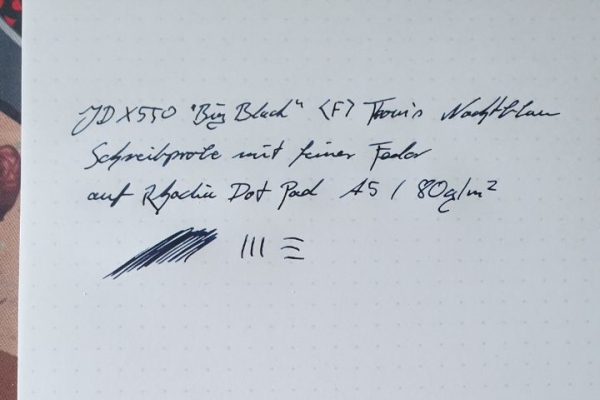 JD X550 "Big Black" <F> Thovi's Nachtblau
Schreibprobe mit feiner Feder
auf Rhodia Dot Pad A5 / 80g/m²